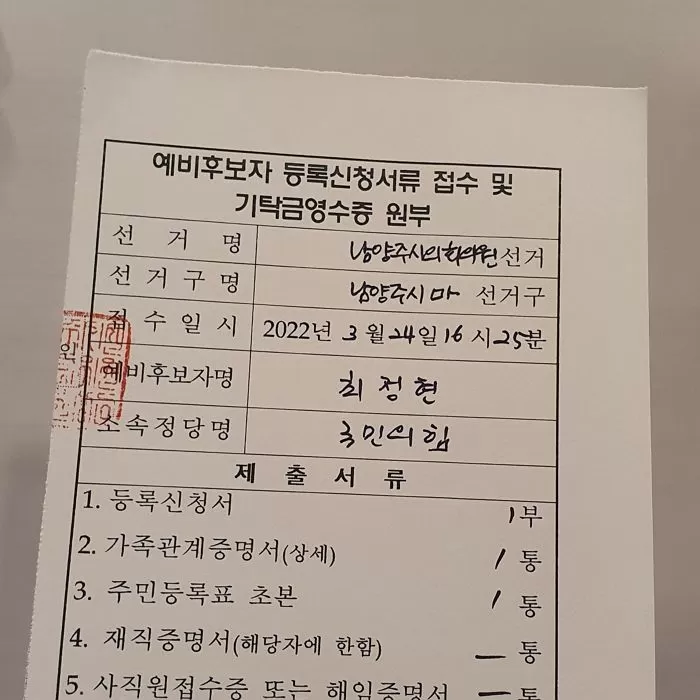 예비후보자 등록신청서류 접수 및
기탁금영수증 원부
선 거 명 남양주시의회의원선거
선 거 구 명 남양주시 마 선거구
접 수 일 시 2022년 3월 24일 16시 25분
예비후보자명 최정현
소속정당명 국민의힘
제 출 서 류
1. 등록신청서 1부
2. 가족관계증명서(상세) 1 통
3. 주민등록표 초본 1 통
4. 재직증명서(해당자에 한함) — 통
5. 사직원접수증 또는 해임증명서 — 통